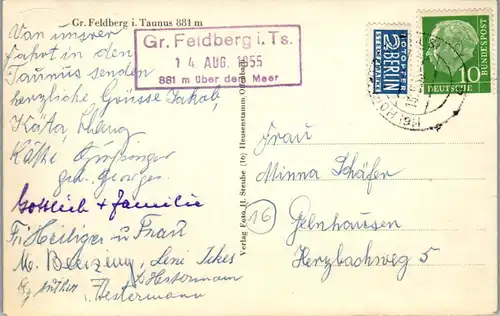 Gr. Feldberg i. Taunus 881 m
Van unsrer
Fahrt in den
Taunus senden
herzliche Grüsse Jakob,
Käta,
Käthe
geb. Georges.
Gottlieb + Familie
Fr. Heiliger u Frau
M. Leni
Hestermann
Hestermann
Gr. Feldberg i. Ts.
14 AUG. 1955
881 m über dem Meer
Verlag Foto H. Steube (16) Heusenstamm Offenbach
NOTOPFER
2 BERLIN
STEUERMARKE
10
DEUTSCHE
BUNDESPOST
Frau
Minna Schäfer
16
Gelnhausen
Herzbachweg 5